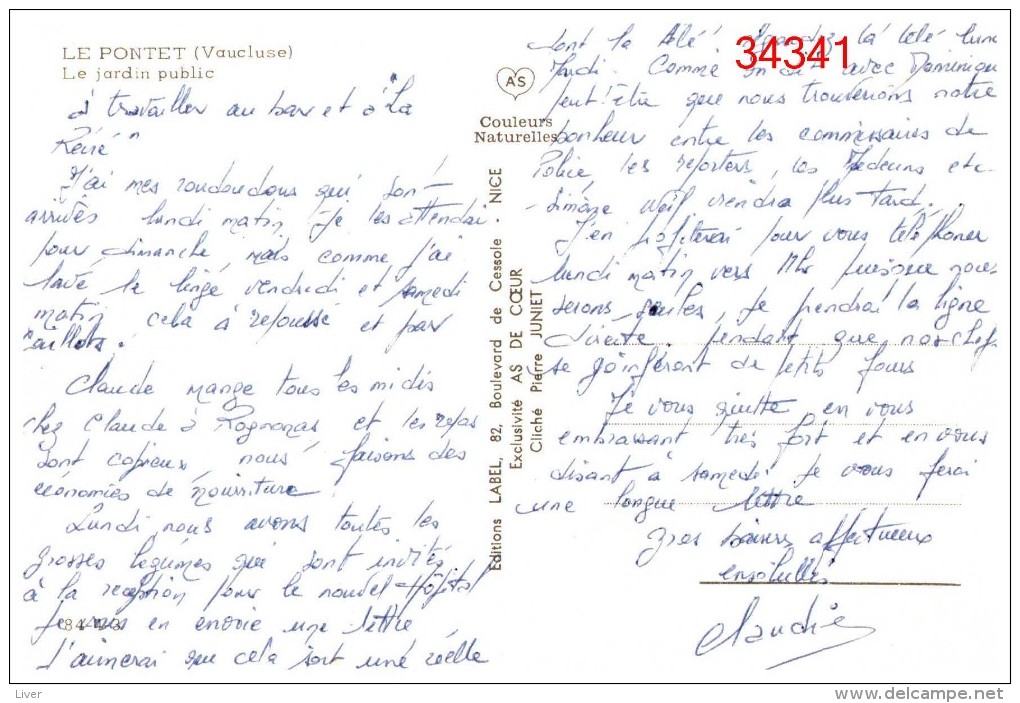 LE PONTET (Vaucluse)
Le jardin public
à travailler au bar et à la
J'ai mes roudoudous qui sont
arrivés lundi matin. Je les attendai
pour dimanche, mais comme j'ai
lavé le linge vendredi et samedi
matin cela à repoussé et par
Claude mange tous les midis
chez Claude à Rognonas et les repas
sont copieux, nous faisons des
économies de nourriture
Lundi nous avons toutes les
grosses légumes qui sont invités
à la réception pour le nouvel Hôpital
Je vous en envoie une lettre
J'aimerai que cela soit une réelle
84-4-3
AS
Couleurs
Naturelles
Editions LABEL, 82, Boulevard de Cessole - NICE
Exclusivité AS DE CŒUR
Cliché Pierre JUNIET
34341
dont la télé! Regardez la télé lune
Mardi. Comme on dit avec Dominique
peut être que nous trouverions notre
bonheur entre les commissaires de
Police les reporters, les Medecins etc
- Simone Weil viendra plus tard.
J'en profiterai pour vous téléphoner
lundi matin vers 11h puisque nous
serons seules, je prendrai la ligne
directe pendant que nos chefs
se goinferont de petits fours
Je vous quitte en vous
embrassant très fort et en vous
disant à samedi Je vous ferai
une longue lettre
gros baisers affectueux
ensoleillés
Claudie
Liver
www.delcampe.net